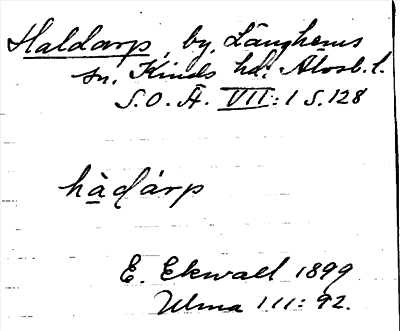 Haldarp, by, Länghems
sn. Kinds hd. Älvsb. l.
S.O.Ä. VII:1 S.128
hàdárp
E. Ekwall 1899
Ulma 111:92.